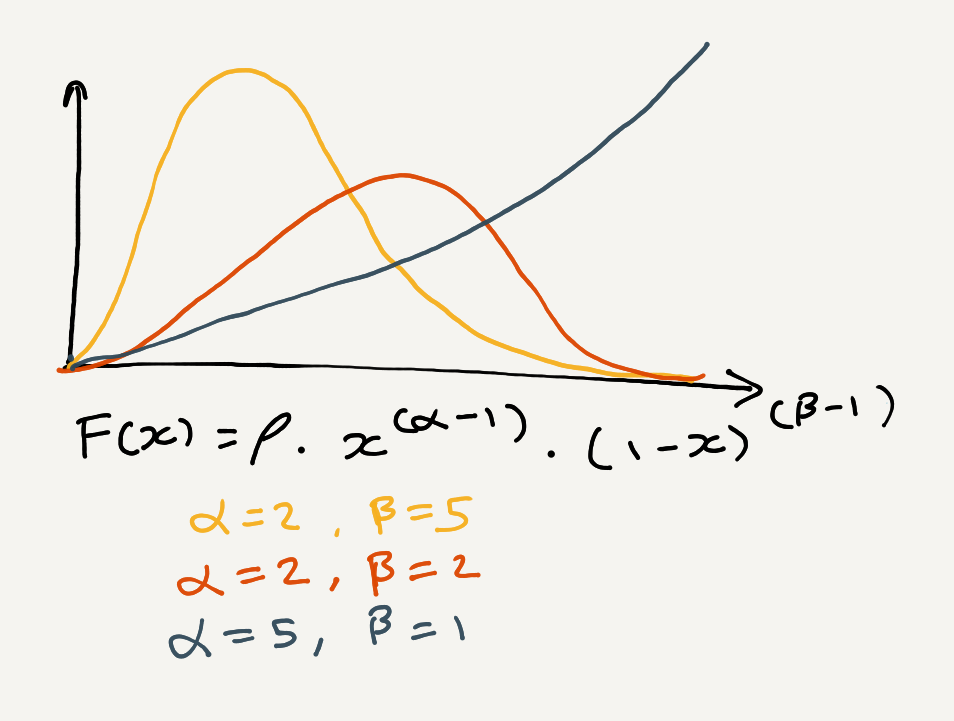 F(x) = ρ · x^(α-1) · (1-x)^(β-1)
α=2, β=5
α=2, β=2
α=5, β=1